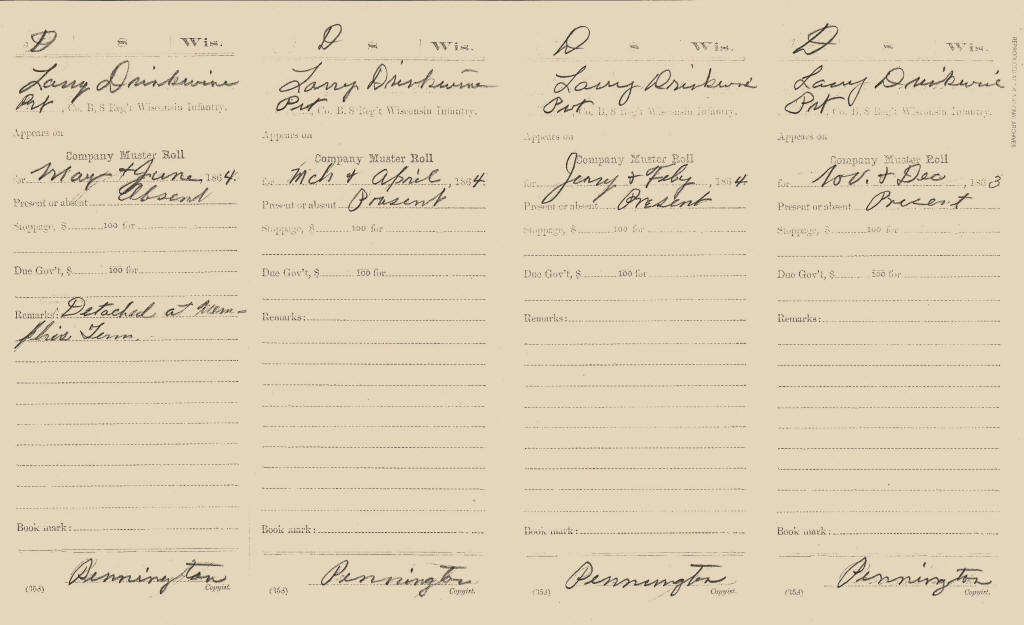 D 8 Wis.
Larry Drinkwine
Prt, Co. B, 8 Reg't Wisconsin Infantry.
Appears on
Company Muster Roll
for May & June, 1864.
Present or absent Absent
Stoppage, $ 100 for
Due Gov't, $ 100 for
Remarks: Detached at Mem-
phis Tenn.
Book mark:
Pennington
(358) Copyist.
D 8 Wis.
Larry Drinkwine
Prt, Co. B, 8 Reg't Wisconsin Infantry.
Appears on
Company Muster Roll
for Mch & April, 1864.
Present or absent Present
Stoppage, $ 100 for
Due Gov't, $ 100 for
Remarks:
Book mark:
Pennington
(358) Copyist.
D 8 Wis.
Larry Drinkwine
Prt, Co. B, 8 Reg't Wisconsin Infantry.
Appears on
Company Muster Roll
for Jany & Feby, 1864
Present or absent Present
Stoppage, $ 100 for
Due Gov't, $ 100 for
Remarks:
Book mark:
Pennington
(358) Copyist.
D 8 Wis.
Larry Drinkwine
Prt, Co. B, 8 Reg't Wisconsin Infantry.
Appears on
Company Muster Roll
for Nov. & Dec, 1863
Present or absent Present
Stoppage, $ 100 for
Due Gov't, $ 100 for
Remarks:
Book mark:
Pennington
(358) Copyist.
REPRODUCED AT THE NATIONAL ARCHIVES